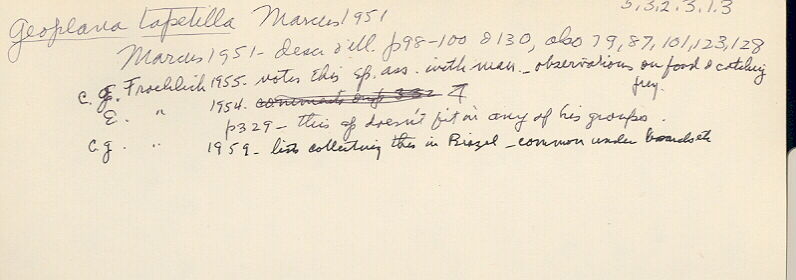 5.3.2.3.1.3
Geoplana tapetilla Marcus 1951
Marcus 1951 - descr & ill. p98-100 & 130, also 79, 87, 101, 123, 128
C.G. Froehlich 1955. notes this sp. ass. with man. - observations on food & catching
prey.
E. " 1954. comments on p 332
p329 - this sp doesn't fit in any of his groups.
C.G. " 1959 - lists collecting this in Brazil - common under boards etc